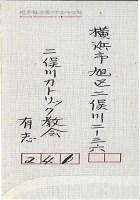 横浜市旭区二俣川二ー三六
二俣川カトリック教会
有志